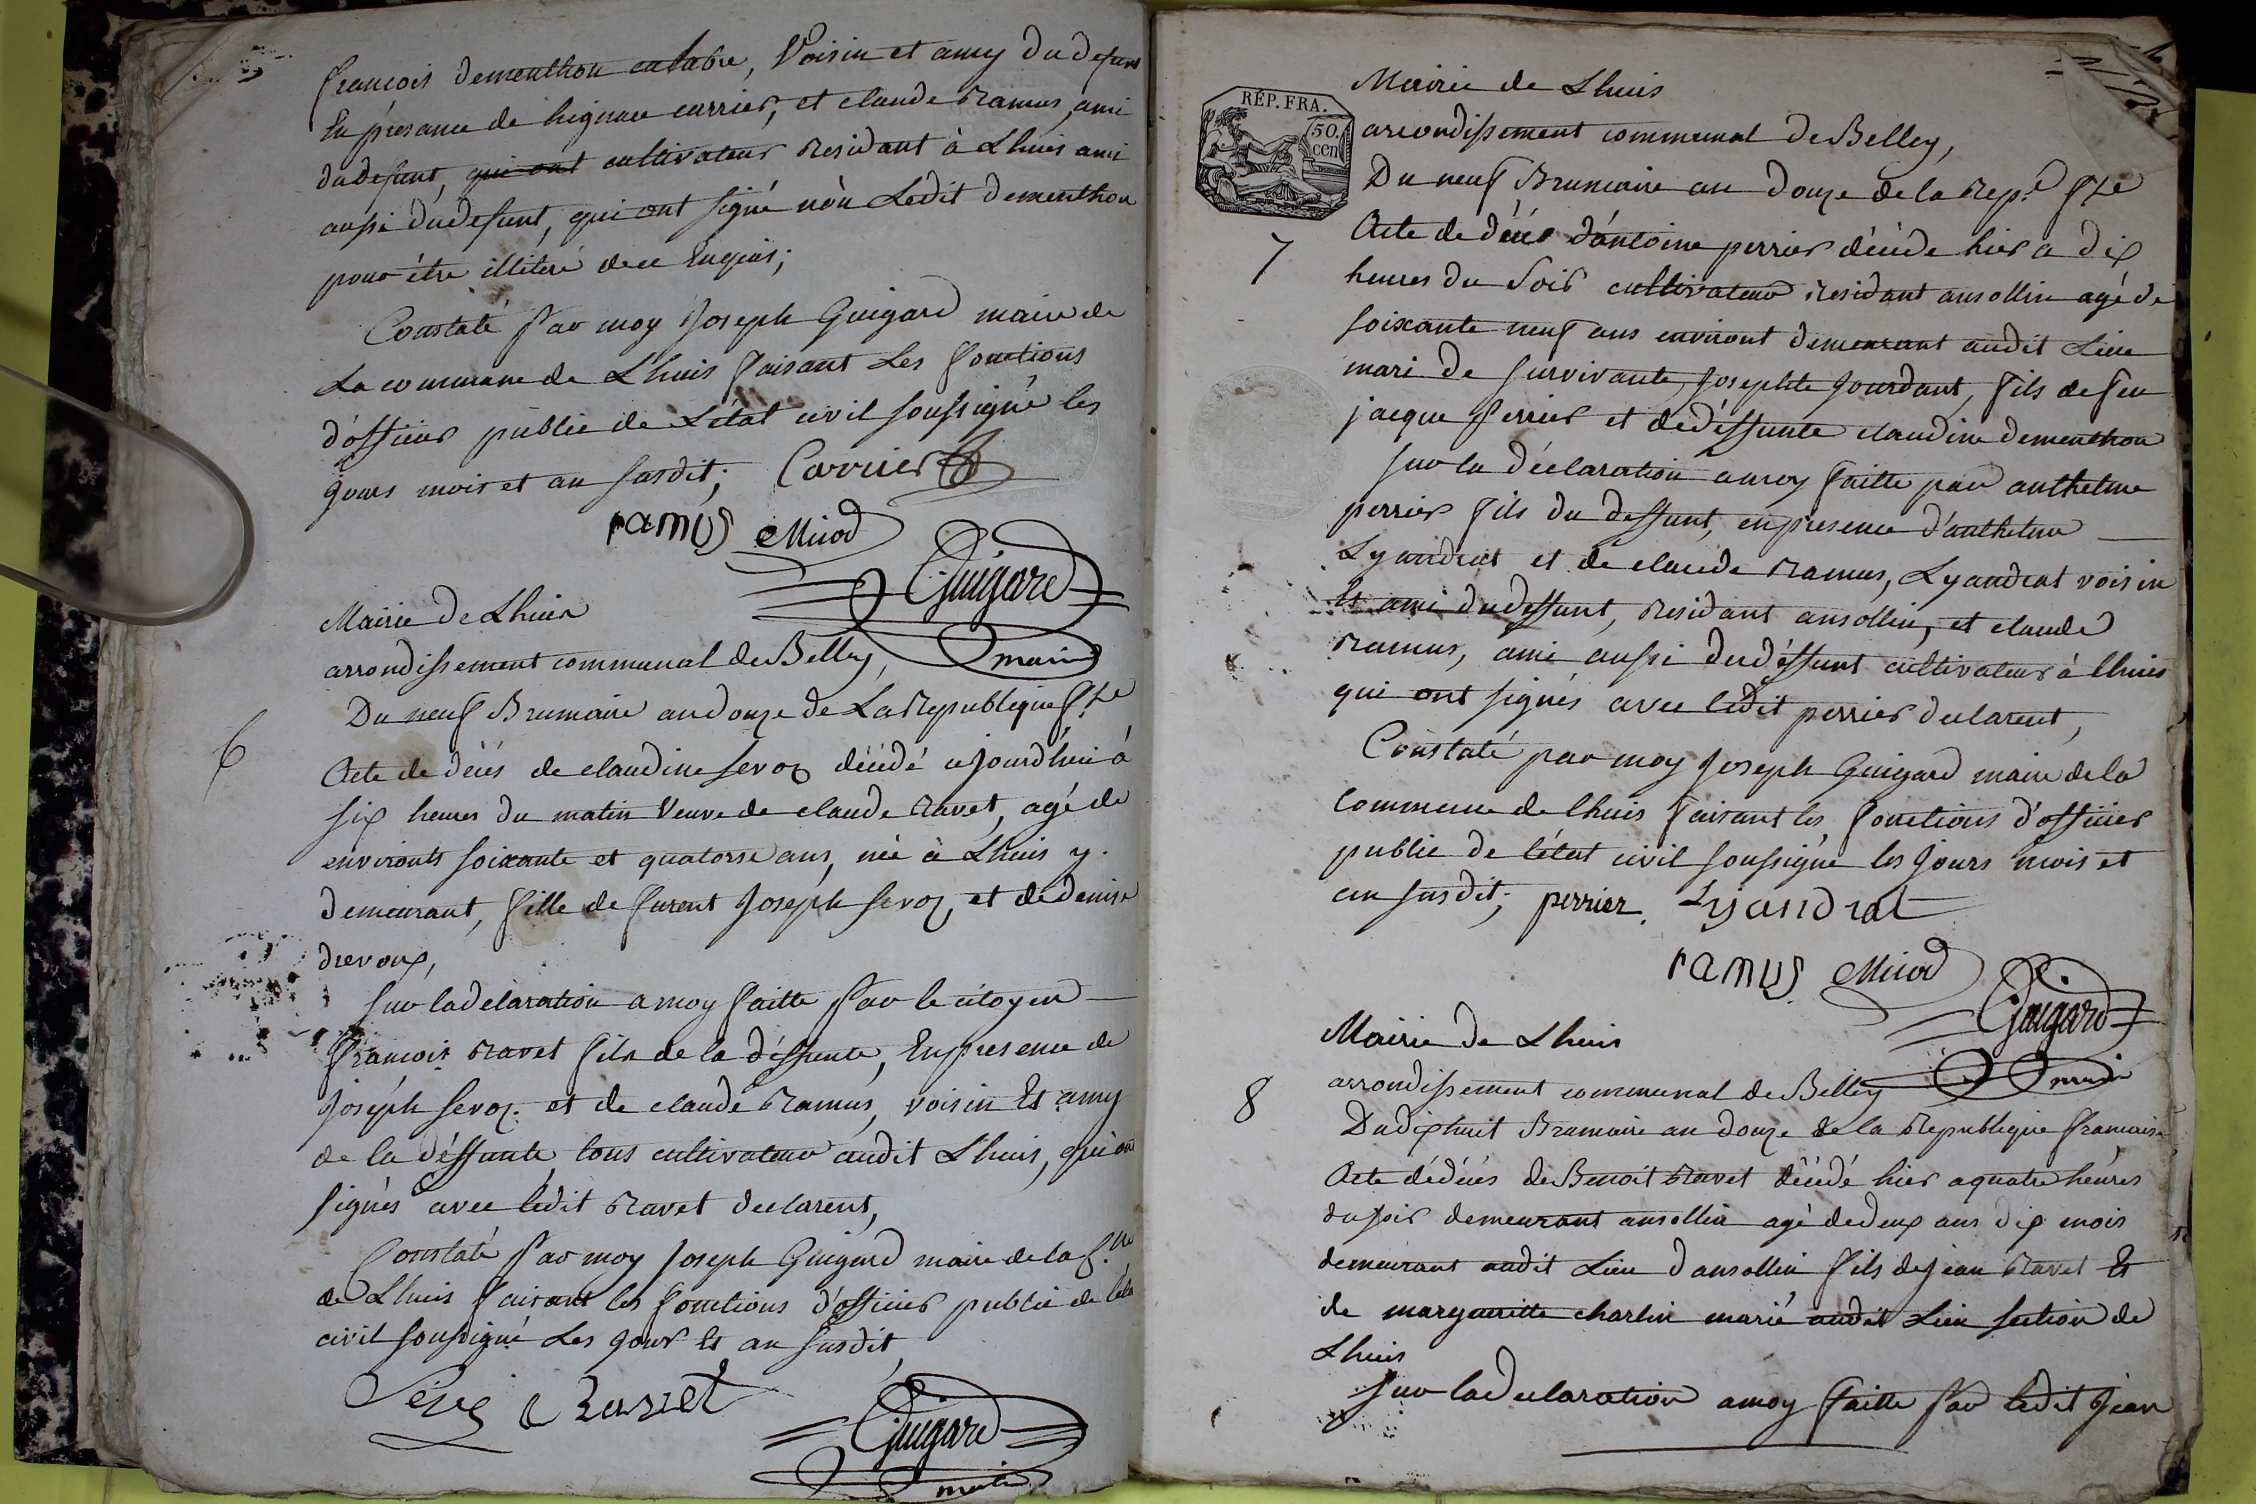 françois dementhon calabre, Voisin et amy du defunt
En présance de hignace carrier, et claude ramus, ami
du defunt, qui ont cultivateur residant à Lhuis ami
aussi du defunt, qui ont signé nòn Ledit dementhon
pour être illiteré de ce Enquis;
Constaté Par moy Joseph Guigard maire de
La commune de Lhuis faisant Les fonctions
d'officier public de L'état civil soussigné les
jours mois et an susdit; Carrier
ramus Miiod
Guigard
maire
Mairie de Lhuis
arrondissement communal de Belley,
Du neuf Brumaire an Douze de La Republique f.se
6
Acte de déces de claudine servoz décédé ajourdhui à
six heures du matin Veuve de claude ravet, agé de
environts soixante et quatorse ans, née à Lhuis y
demeurant, fille de furent Joseph servoz, et de denise
drevoux,
sur la délaration a moy faitte Par le citoyen
françois ravet fils de la déffunte, En presence de
Joséph servoz et de claude ramus, voisin Et amy
de la déffunte tous cultivateur audit Lhuis, qui on
signés avec ledit ravet declarent,
Constaté Par moy Joseph Guigard maire de la c.ne
de Lhuis faisant les fonctions d'officier public de l'éta
civil soussigné Les jour Et an susdit
Ravet
Guigard
maire
RÉP. FRA.
50.
cen
Mairie de Lhuis
arrondissement communal de Belley,
Du neuf Brumaire an Douze de la rep.e f.se
7
Acte de déces d'antoine perrier décéde hier a dix
heures du soir cultivateur residant ansollin agé de
soixante neuf ans environt demeurant audit Lieu
mari de survivante, Josephte Jourdant, fils de feu
jacque Perrier et de déffunte claudine dementhon
sur la déclaration a moy faitte par anthelme
perrier fils du deffunt, en présence d'anthelme
Lyandrat et de claude ramus, Lyandrat voisin
Et ami du deffunt, residant ansollin, et claude
ramus, ami aussi du déffunt cultivateur à lhuis
qui ont signés avec ledit perrier declarent,
Constaté par moy Joseph Guigard maire de la
commune de lhuis faisant les fonctions d'officier
public de l'état civil soussigné les jours mois et
an susdit; perrier Lyandrat
ramus Miiod
Guigard
maire
Mairie de Lhuis
8
arrondissement communal de Belley
Du dixhuit Brumaire an douze de la Republique française
Acte dédécés de Benoit ravet décédé hier a quatre heures
du soir demeurant ansollin agé de deux ans dix mois
demeurant audit Lieu d'ansollin fils de jean ravet Et
de margueritte charlin marié audit Lieu section de
Lhuis
sur la declaration a moy faitte Par ledit jean